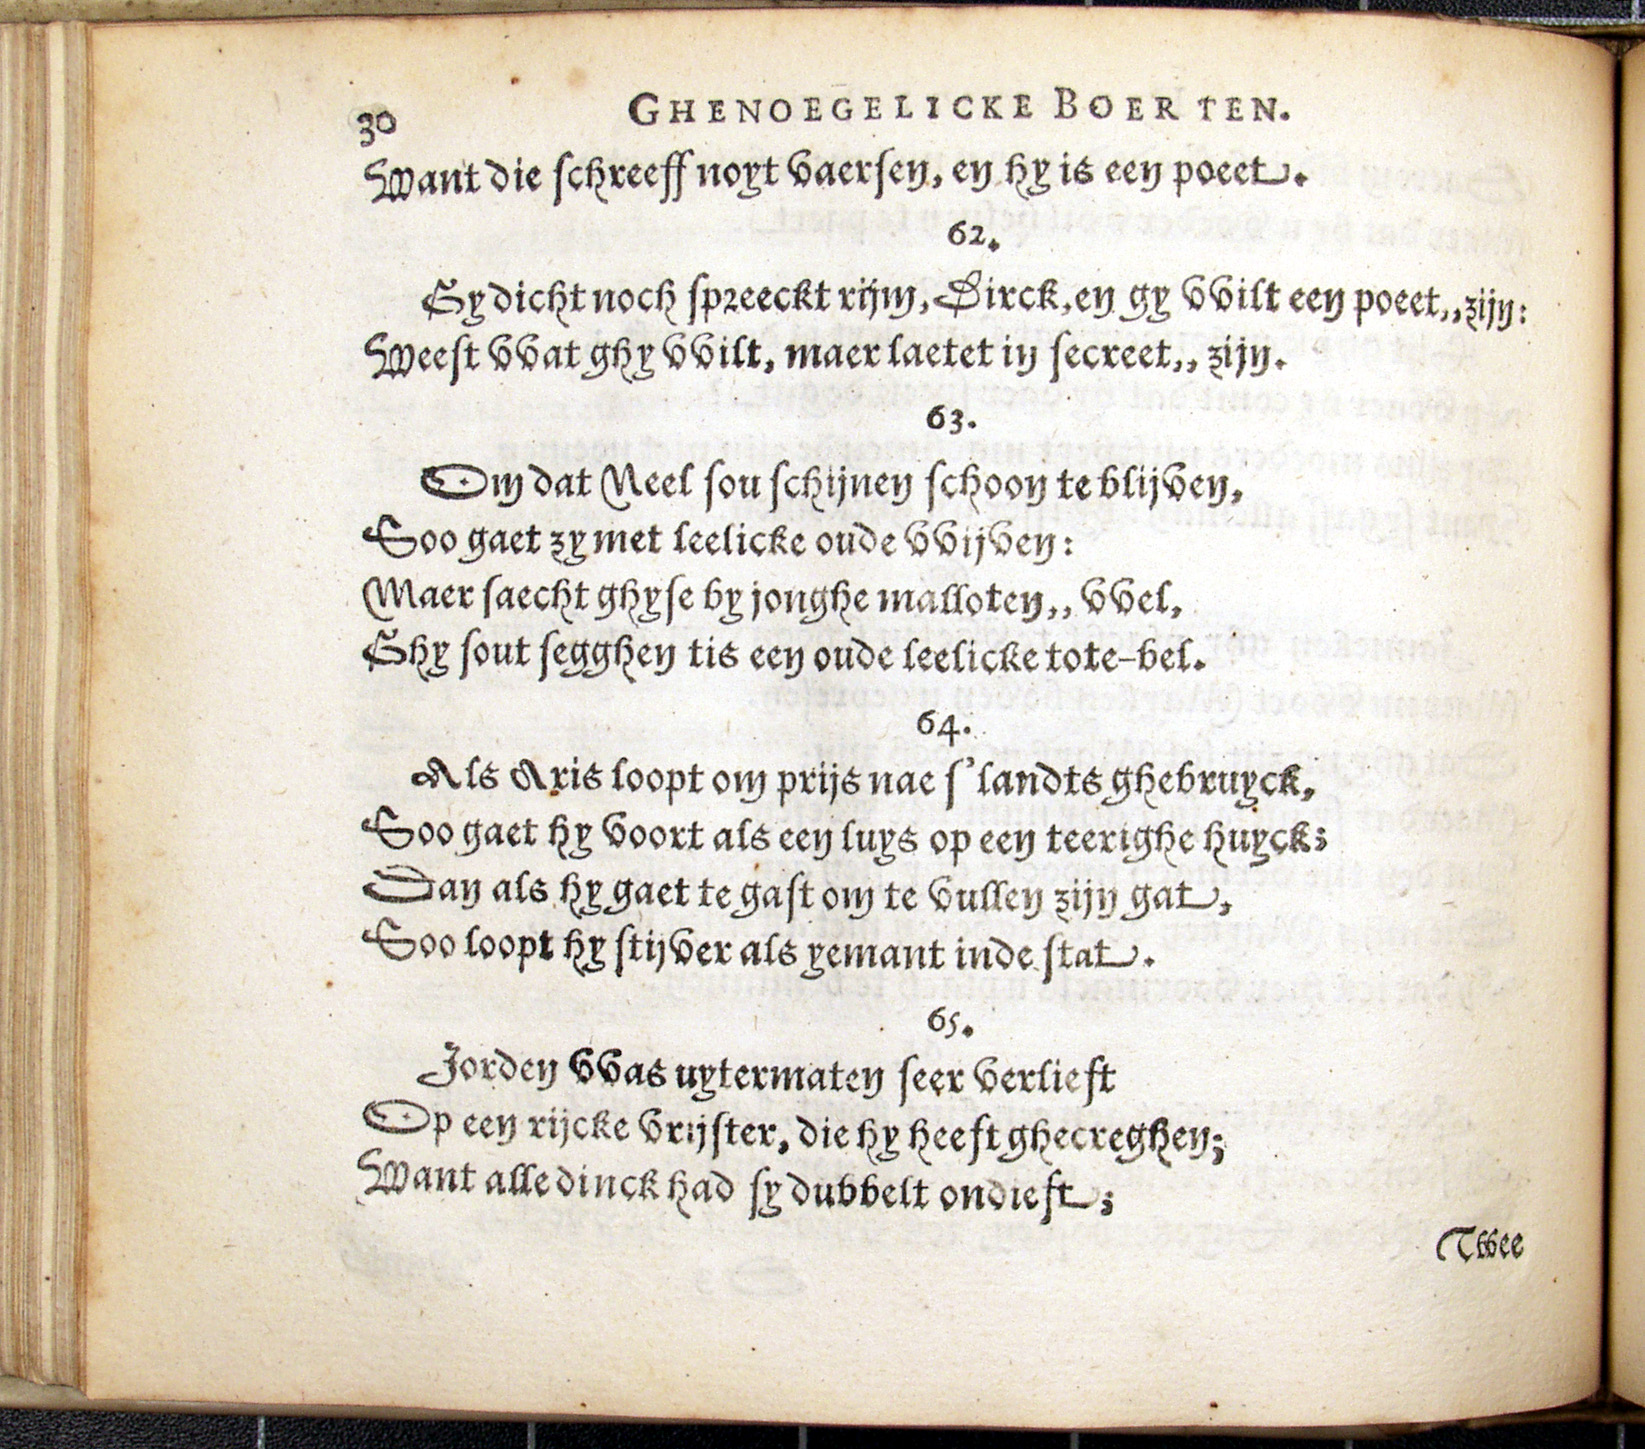 30 GHENOEGELICKE BOERTEN.
Want die schreeff noyt vaersen, en hy is een poeet.
62.
Gy dicht noch spreeckt rijm, Dirck, en gy vvilt een poeet,, zijn:
Weest vvat ghy vvilt, maer laetet in secreet,, zijn.
63.
Om dat Neel sou schijnen schoon te blijven,
Soo gaet zy met leelicke oude vvijven:
Maer saecht ghyse by jonghe malloten,, vvel,
Ghy sout segghen tis een oude leelicke tote-bel.
64.
Als Aris loopt om prijs nae s'landts ghebruyck,
Soo gaet hy voort als een luys op een teerighe huyck;
Dan als hy gaet te gast om te vullen zijn gat,
Soo loopt hy stijver als yemant inde stat.
65.
Jorden vvas uytermaten seer verlieft
Op een rijcke vrijster, die hy heeft ghecreghen;
Want alle dinck had sy dubbelt ondieft;
Twee